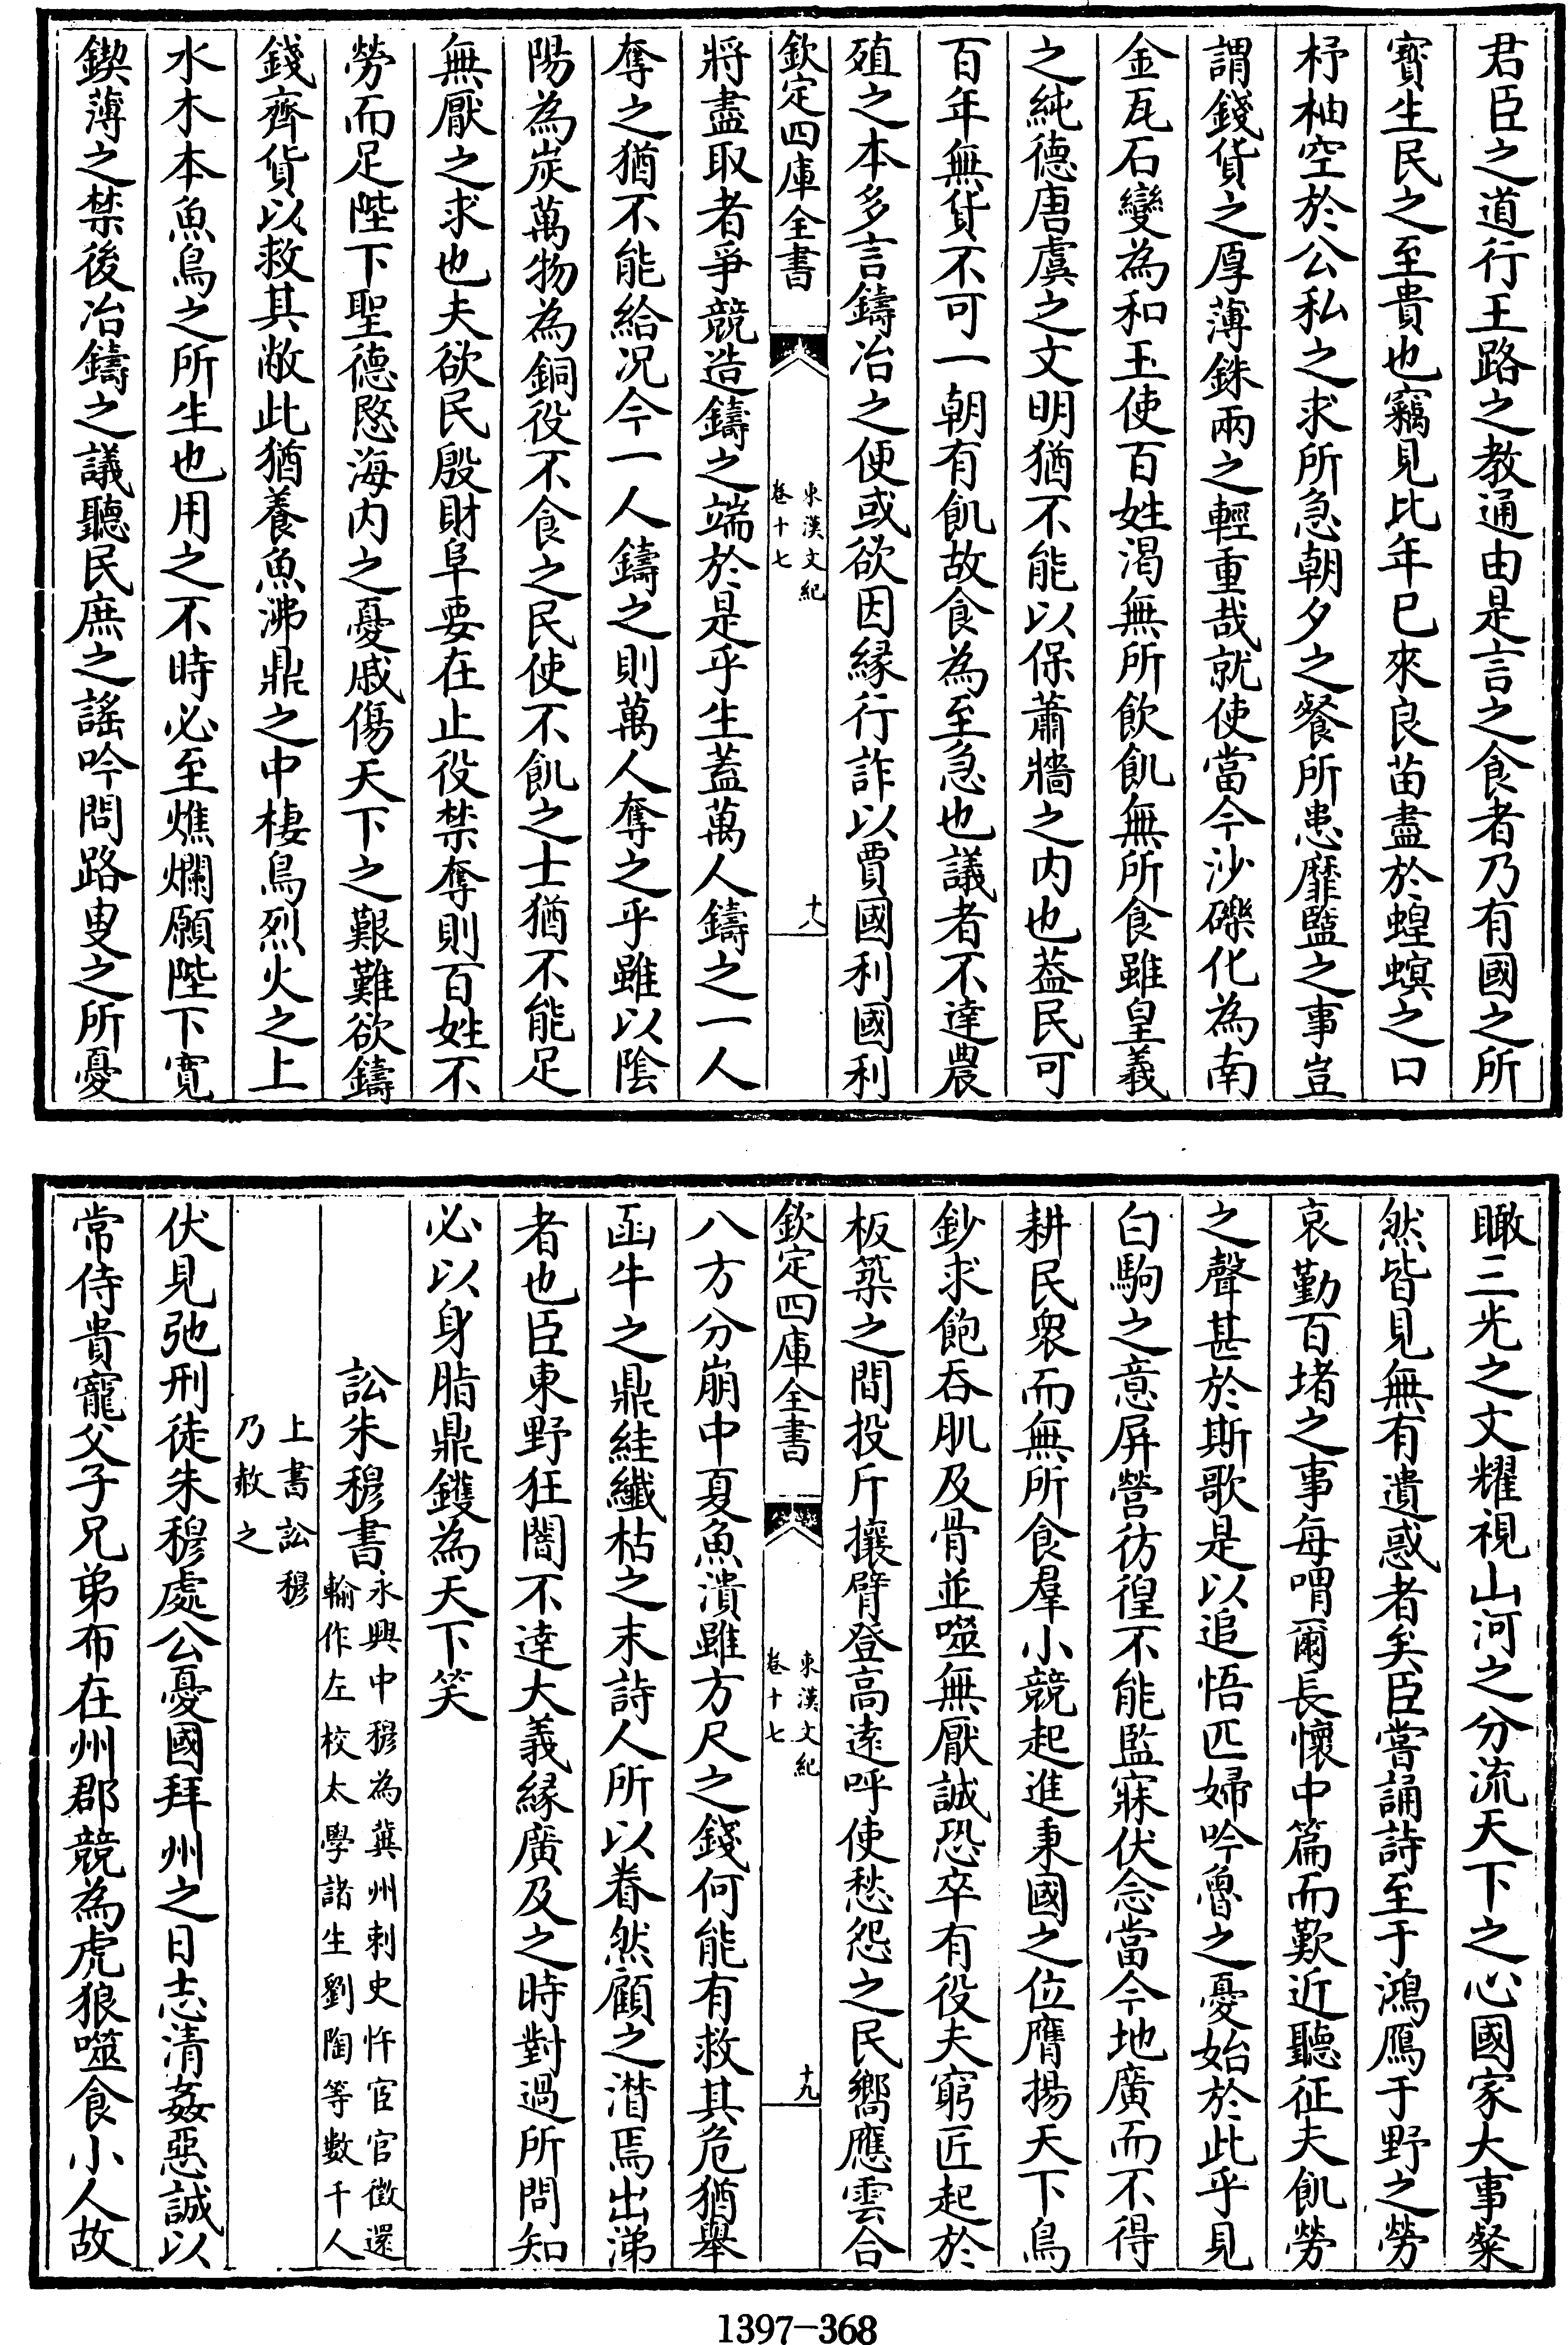 君臣之道行王路之教通由是言之食者乃有國之所
寳生民之至貴也竊見比年已來良苗盡於蝗螟之口
杼柚空於公私之求所急朝夕之餐所患靡盬之事豈
謂錢貨之厚薄銖兩之輕重哉就使當今沙礫化為南
金瓦石變為和玉使百姓渇無所飲飢無所食雖皇羲
之純德唐虞之文明猶不能以保蕭牆之内也葢民可
百年無貨不可一朝有飢故食為至急也議者不達農
殖之本多言鑄冶之便或欲因縁行詐以賈國利國利
欽定四庫全書
東漢文紀
卷十七
十八
將盡取者爭競造鑄之端於是乎生蓋萬人鑄之一人
奪之猶不能給况今一人鑄之則萬人奪之乎雖以陰
陽為炭萬物為銅役不食之民使不飢之士猶不能足
無厭之求也夫欲民殷財阜要在止役禁奪則百姓不
勞而足陛下聖德愍海内之憂戚傷天下之艱難欲鑄
錢齊貨以救其敝此猶養魚沸鼎之中棲鳥烈火之上
水木本魚鳥之所生也用之不時必至燋爛願陛下寛
鍥薄之禁後冶鑄之議聽民庶之謠吟問路叟之所憂
瞰三光之文耀視山河之分流天下之心國家大事粲
然皆見無有遺惑者矣臣嘗誦詩至于鴻鴈于野之勞
哀勤百堵之事每喟爾長懷中篇而歎近聽征夫飢勞
之聲甚於斯歌是以追悟匹婦吟魯之憂始於此乎見
白駒之意屏營彷徨不能監寐伏念當今地廣而不得
耕民衆而無所食羣小競起進秉國之位鷹揚天下鳥
鈔求飽吞肌及骨並噬無厭誠恐卒有役夫窮匠起於
板築之間投斤攘臂登高遠呼使愁怨之民嚮應雲合
欽定四庫全書
東漢文紀
卷十七
十九
八方分崩中夏魚潰雖方尺之錢何能有救其危猶舉
函牛之鼎絓纖枯之末詩人所以眷然顧之潸焉出涕
者也臣東野狂闇不達大義縁廣及之時對過所問知
必以身脂鼎鑊為天下笑
訟朱穆書
永興中穆為冀州刺史忤宦官徴還
輸作左校太學諸生劉陶等數千人
上書訟穆
乃赦之
伏見弛刑徒朱穆處公憂國拜州之日志清姦惡誠以
常侍貴寵父子兄弟布在州郡競為虎狼噬食小人故
1397-368